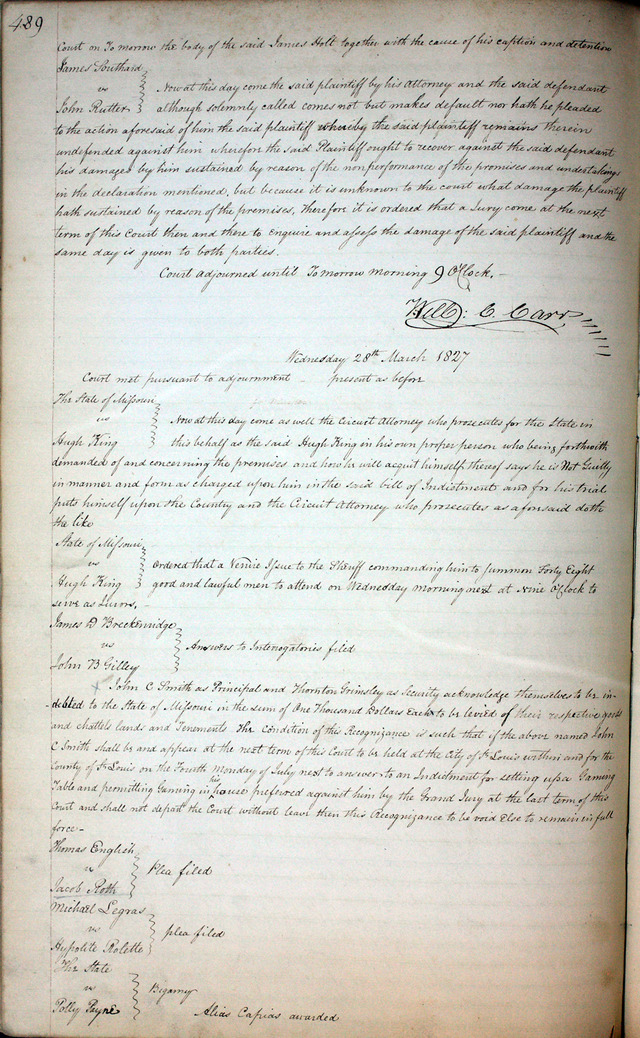 489
Court on To morrow the body of the said James Holt together with the cause of his caption and detention
James Southard
vs
John Rutter
Now at this day come the said plaintiff by his Attorney and the said defendant
although solemnly called comes not but makes default nor hath he pleaded
to the action aforesaid of him the said plaintiff whereby the said plaintiff remains therein
undefended against him wherefore the said Plaintiff ought to recover against the said defendant
his damages by him sustained by reason of the nonperformance of the promises and undertakings
in the declaration mentioned, but because it is unknown to the court what damage the plaintiff
hath sustained by reason of the premises, Therefore it is ordered that a Jury come at the next
term of this Court then and there to enquire and assess the damage of the said plaintiff and the
same day is given to both parties.
Court adjourned until Tomorrow morning 9 O'Clock. -
Will: C. Carr
Wednesday 28th March 1827
Court met pursuant to adjournment - present as before
The State of Missouri
vs
Hugh King
Now at this day come as well the Circuit Attorney who prosecutes for the State in
this behalf as the said Hugh King in his own proper person who being forthwith
demanded of and concerning the premises and how he will acquit himself thereof says he is Not Guilty
in manner and form as charged upon him in the said bill of Indictment and for his trial
puts himself upon the Country and the Circuit Attorney who prosecutes as aforesaid doth
the like
State of Missouri
vs
Hugh King
Ordered that a Venire Issue to the Sheriff commanding him to summon Forty Eight
good and lawful men to attend on Wednesday morning next at Nine O'Clock to
serve as Jurors. -
James D Breckenridge
vs
John B Gilley
Answers to Interogatories filed
X John C Smith as Principal and Thornton Grimsley as Security acknowledge themselves to be in-
debted to the State of Missouri in the sum of One Thousand Dollars Each to be levied of their respective goods
and chattels lands and Tenements. The Condition of this Recognizance is such that if the above named John
C Smith shall be and appear at the next term of this Court to be held at the City of St Louis within and for the
County of St Louis on the Fourth Monday of July next to answer to an Indictment for setting up a Gaming
Table and permitting Gaming in his house preferred against him by the Grand Jury at the last term of this
Court and shall not depart the Court without leave then this Recognizance to be void Else to remain in full
force -
Thomas English
vs
Jacob Roth
Plea filed
Michael Legras
vs
Hypolite Rolette
plea filed
The State
vs
Polly Payne
Bigamy
Alias Capias awarded